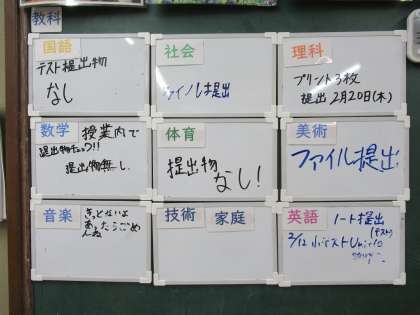 教科
国語
テスト提出物
なし
社会
ファイル提出
理科
プリント3枚
提出 2月20日(木)
数学 授業内で
提出物チェック!!
提出物無し
体育
提出物
なし!
美術
ファイル提出
音楽
きっとないよ
あったらごめ
んね
技術 家庭
英語 ノート提出
(テスト)
2/12 小テスト Unit10